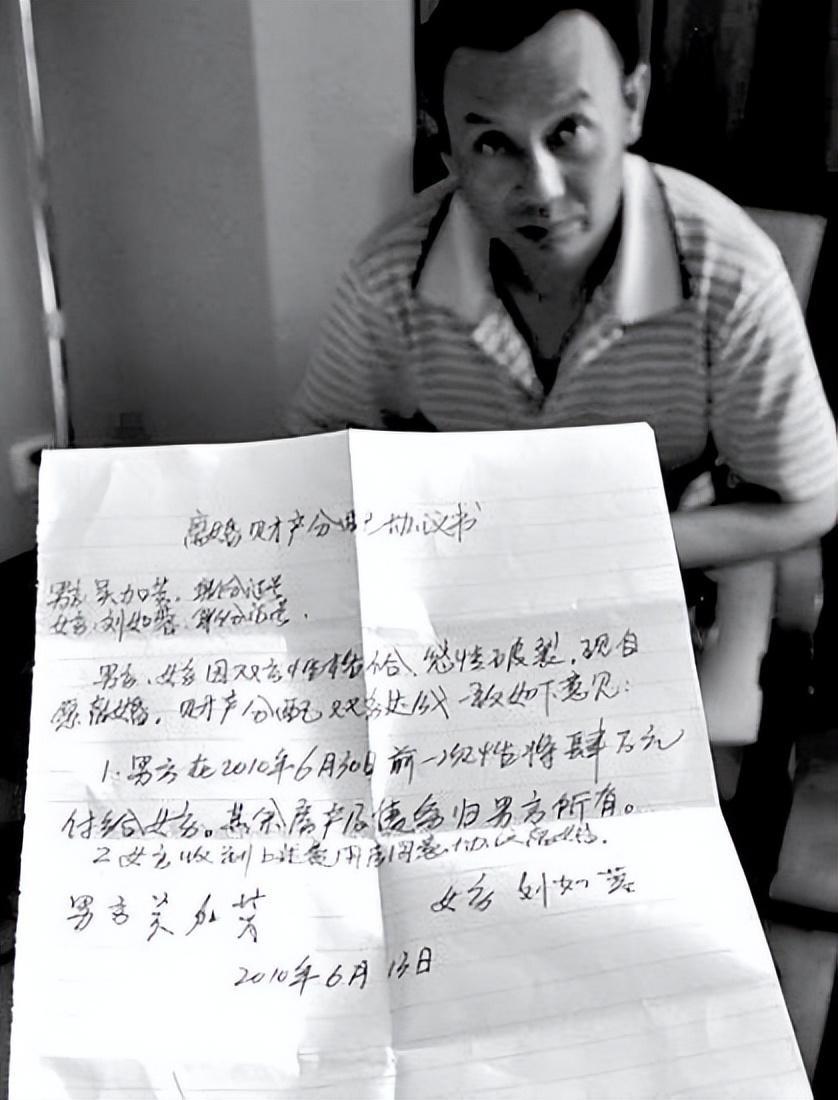 离婚财产分配协议书
男方:吴加芳,身份证号
女方:刘如蓉,身份证号.
男方、女方因双方性格不合,感情破裂,现自
愿离婚,财产分配双方达成一致如下意见:
1:男方在2010年6月30日前一次性将肆万元
付给女方。其余房产及债务归男方所有。
2、女方收到上述费用后同意协议离婚.
男方 吴加芳 女方 刘如蓉
2010年6月13日